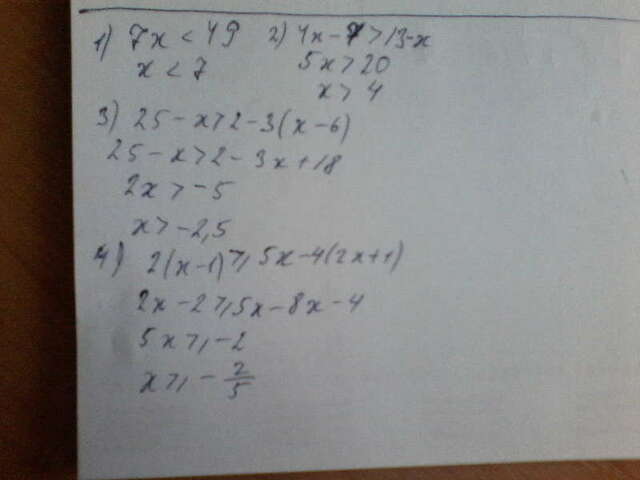 1) 7x < 49 2) 4x - 7 > 13-x
x < 7 5x > 20
x > 4
3) 25 - x > 2 - 3(x - 6)
25 - x > 2 - 3x + 18
2x > -5
x > -2,5
4) 2(x-1) ⩾ 5x - 4(2x+1)
2x - 2 ⩾ 5x - 8x - 4
5x ⩾ -2
x ⩾ - 2/5